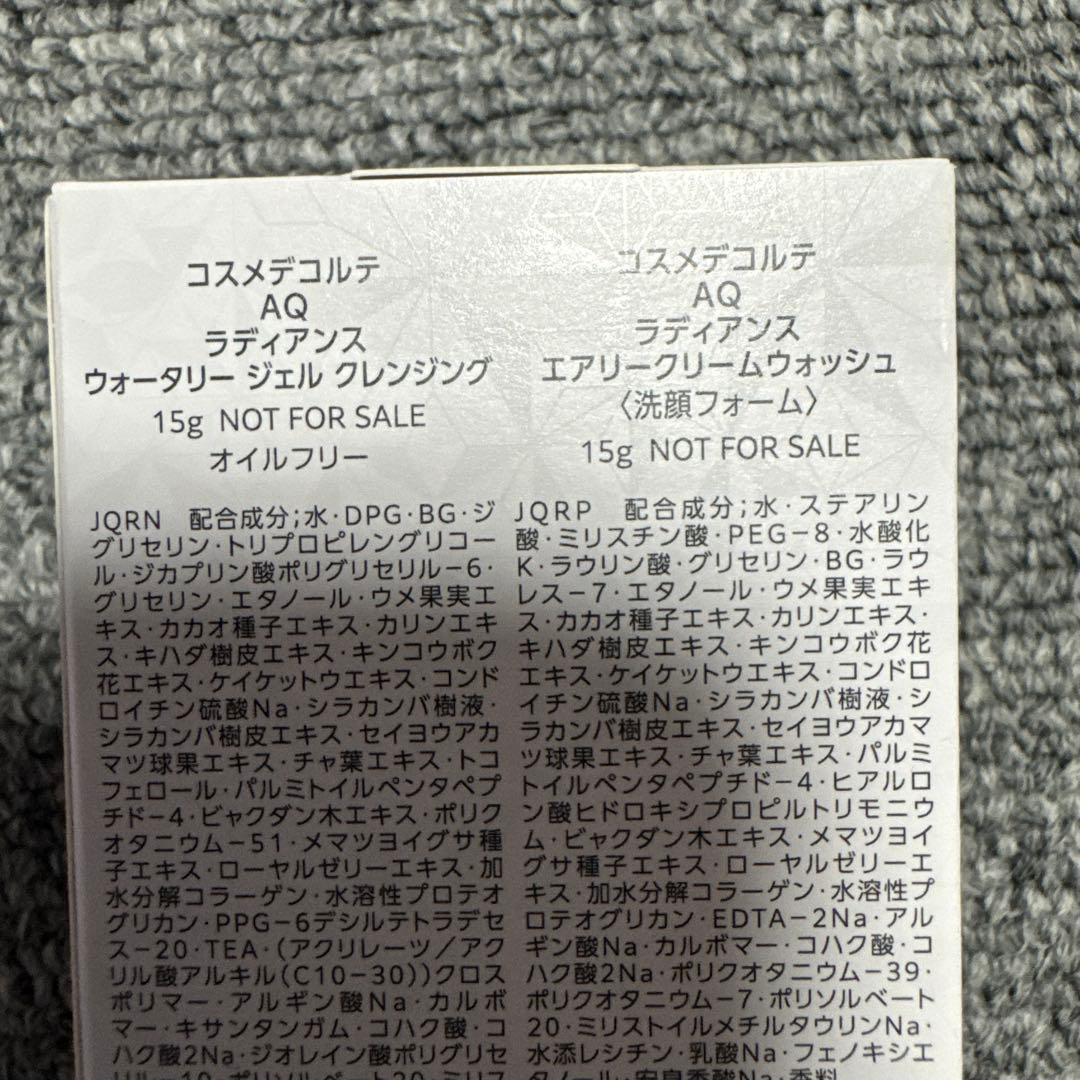 コスメデコルテ
AQ
ラディアンス
ウォータリー ジェル クレンジング
15g NOT FOR SALE
オイルフリー
JQRN 配合成分;水・DPG・BG・ジ
グリセリン・トリプロピレングリコー
ル・ジカプリン酸ポリグリセリル-6・
グリセリン・エタノール・ウメ果実エ
キス・カカオ種子エキス・カリンエキ
ス・キハダ樹皮エキス・キンコウボク
花エキス・ケイケットウエキス・コンド
ロイチン硫酸Na・シラカンバ樹液・
シラカンバ樹皮エキス・セイヨウアカ
マツ球果エキス・チャ葉エキス・トコ
フェロール・パルミトイルペンタペプ
チド-4・ビャクダン木エキス・ポリク
オタニウム-51・メマツヨイグサ種
子エキス・ローヤルゼリーエキス・加
水分解コラーゲン・水溶性プロテオ
グリカン・PPG-6デシルテトラデセ
ス-20・TEA・(アクリレーツ/アク
リル酸アルキル(C10-30))クロス
ポリマー・アルギン酸Na・カルボ
マー・キサンタンガム・コハク酸・コ
ハク酸2Na・ジオレイン酸ポリグリセ
リル-10・ポリソルベート20・ミリス
コスメデコルテ
AQ
ラディアンス
エアリークリームウォッシュ
〈洗顔フォーム〉
15g NOT FOR SALE
JQRP 配合成分;水・ステアリン
酸・ミリスチン酸・PEG-8・水酸化
K・ラウリン酸・グリセリン・BG・ラウ
レス-7・エタノール・ウメ果実エキ
ス・カカオ種子エキス・カリンエキス・
キハダ樹皮エキス・キンコウボク花
エキス・ケイケットウエキス・コンドロ
イチン硫酸Na・シラカンバ樹液・シ
ラカンバ樹皮エキス・セイヨウアカマ
ツ球果エキス・チャ葉エキス・パルミ
トイルペンタペプチド-4・ヒアルロ
ン酸ヒドロキシプロピルトリモニウ
ム・ビャクダン木エキス・メマツヨイ
グサ種子エキス・ローヤルゼリーエ
キス・加水分解コラーゲン・水溶性プ
ロテオグリカン・EDTA-2Na・アル
ギン酸Na・カルボマー・コハク酸・コ
ハク酸2Na・ポリクオタニウム-39・
ポリクオタニウム-7・ポリソルベート
20・ミリストイルメチルタウリンNa・
水添レシチン・乳酸Na・フェノキシエ
タノール・安息香酸Na・香料